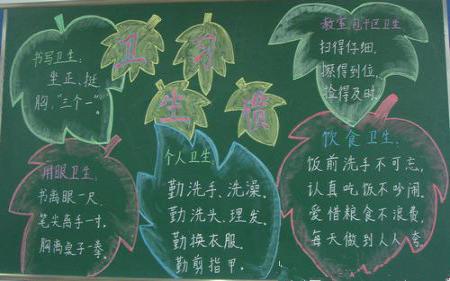 卫习
生惯
书写卫生:
坐正、挺
胸,“三个一”。
用眼卫生:
书离眼一尺,
笔尖离手一寸,
胸离桌子一拳。
个人卫生:
勤洗手、洗澡。
勤洗头、理发。
勤换衣服。
勤剪指甲。
教室包干区卫生
扫得仔细,
擦得到位,
捡得及时。
饮食卫生:
饭前洗手不可忘,
认真吃饭不吵闹。
爱惜粮食不浪费,
每天做到人人夸。